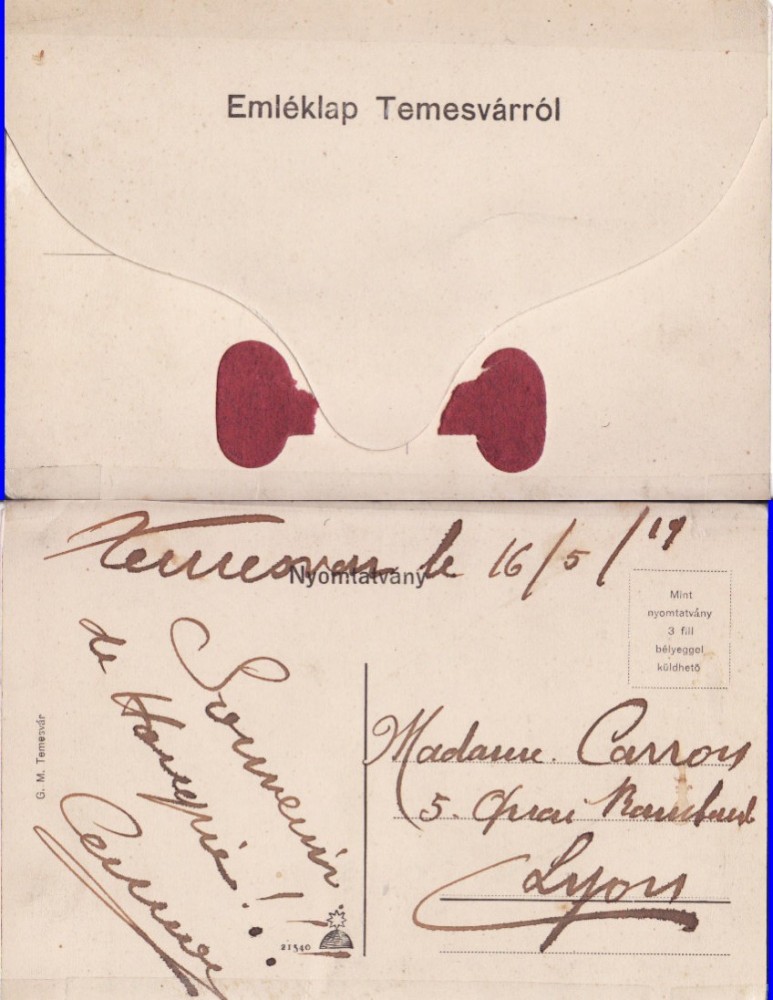 Emléklap Temesvárról
Temesvar le 16/5/19
Nyomtatvány
Mint
nyomtatvány
3 fill
bélyeggel
küldhető
Souvenir
de Hongrie!..
G. M. Temesvár
Madame Carron
5. Quai Rambaud
Lyon
21340